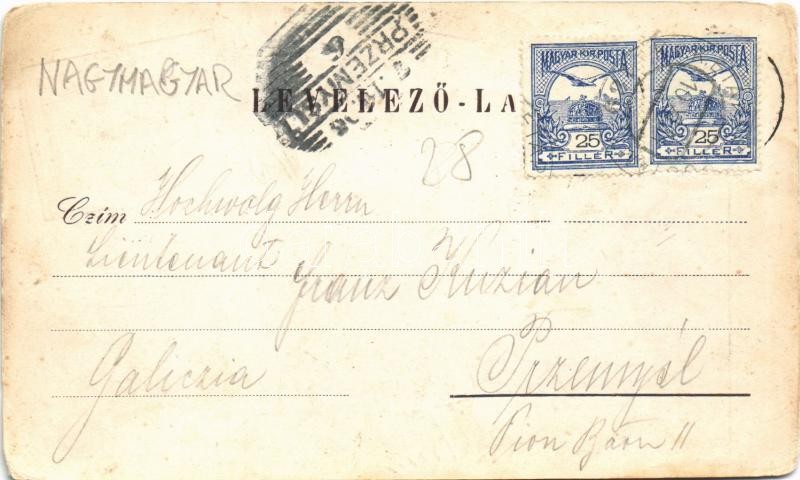 NAGYMAGYAR
PRZEMYŚL
MAGYAR·KIR·POSTA
25
FILLÉR
MAGYAR·KIR·POSTA
25
FILLÉR
LEVELEZŐ-LA
28
Czím Hochwolg Herrn
Lientenant Franz Kuzian
Galiczia Przemyśl
Pion Baon 11